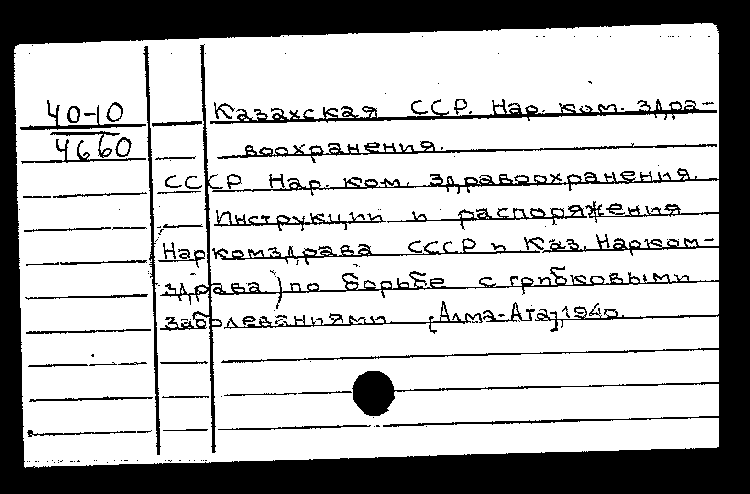 40-10
4660
Казахская СССР. Нар. ком. здра-
воохранения.
СССР Нар. ком. здравоохранения.
Инструкции и распоряжения
(Наркомздрава СССР и Каз. Нарком-
здрава) по борьбе с грибковыми
заболеваниями. [Алма-Ата], 1940.